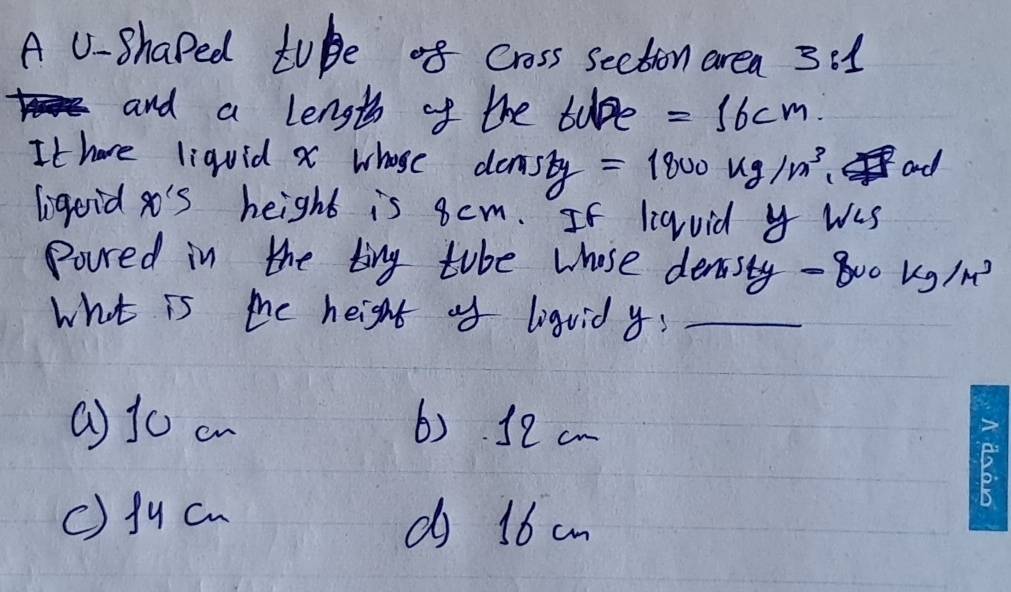 A U-Shaped tube of Cross section area 3:1
and a length of the tube = 16cm.
It have liquid x whose density = 1800 kg/m³, and
liquid x's height is 8cm. If liquid y was
Poured in the tiny tube whose density = 800 kg/m³
What is the height of liquid y:
a) 10 cm
b) 12 cm
c) 14 cm
d) 16 cm
صفحة ٨